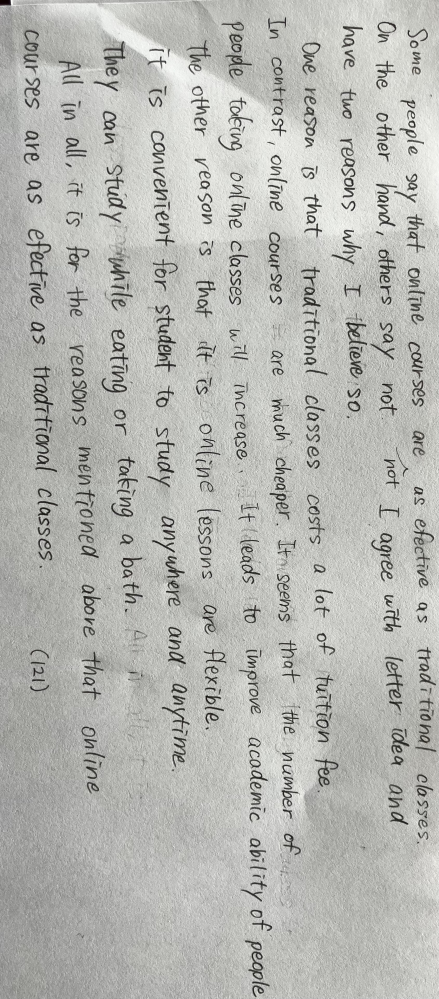 Some people say that online courses are not as efective as traditional classes.
On the other hand, others say not I agree with letter idea and
have two reasons why I believe so.
One reason is that traditional classes costs a lot of tuition fee.
In contrast, online courses are much cheaper. It seems that the number of
people taking online classes will increase. It leads to improve academic ability of people
The other reason is that it is online lessons are flexible.
it is convenient for student to study anywhere and anytime.
They can study while eating or taking a bath.
All in all, it is for the reasons mentioned above that online
courses are as efective as traditional classes. (121)